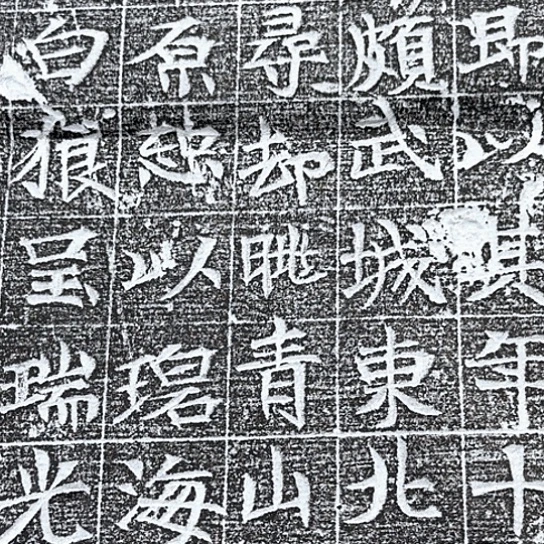 即以其年十
頗武城東北
尋却眺青山
原以海
白狼呈瑞光